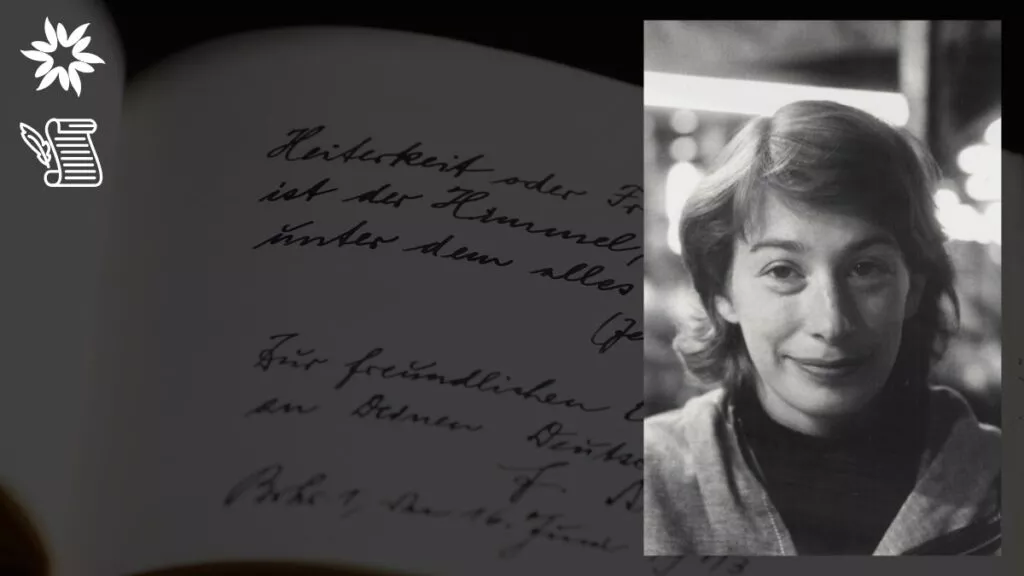 Heiterkeit oder Fr
ist der Himmel,
unter dem alles
Zur freundlichen
an Deinen Deutsc
F.
den 16. Juni